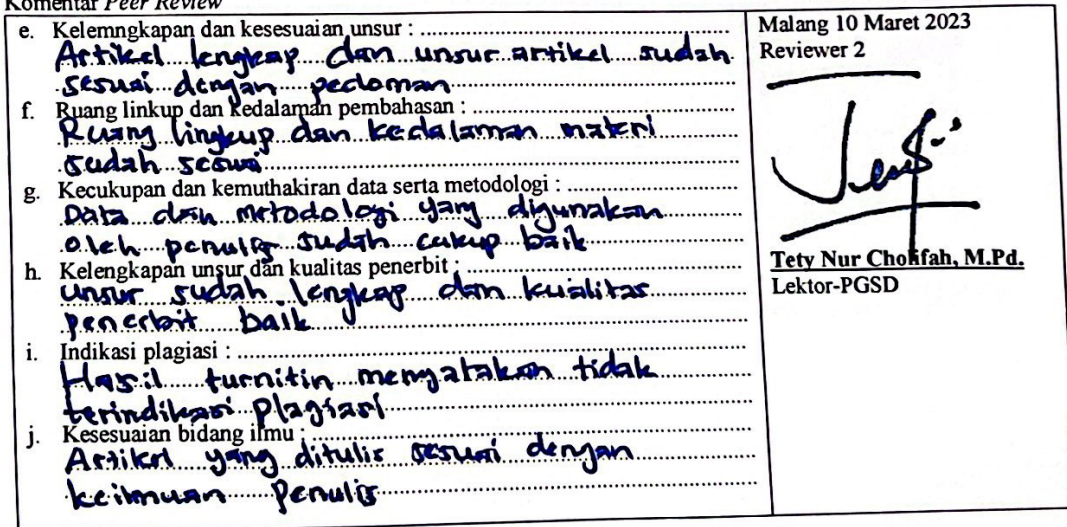 Komentar Peer Review
e. Kelemngkapan dan kesesuaian unsur : ........................................
Artikel lengkap dan unsur artikel sudah
sesuai dengan pedoman
f. Ruang linkup dan kedalaman pembahasan : ........................................
Ruang lingkup dan kedalaman materi
sudah sesuai
g. Kecukupan dan kemuthakiran data serta metodologi : ........................................
Data dan metodologi yang digunakan
oleh penulis sudah cukup baik
h. Kelengkapan unsur dan kualitas penerbit : ........................................
Unsur sudah lengkap dan kualitas
penerbit baik
i. Indikasi plagiasi : ........................................
Hasil turnitin menyatakan tidak
terindikasi plagiasi
j. Kesesuaian bidang ilmu : ........................................
Artikel yang ditulis sesuai dengan
keilmuan penulis
Malang 10 Maret 2023
Reviewer 2
Tety Nur Cholifah, M.Pd.
Lektor-PGSD